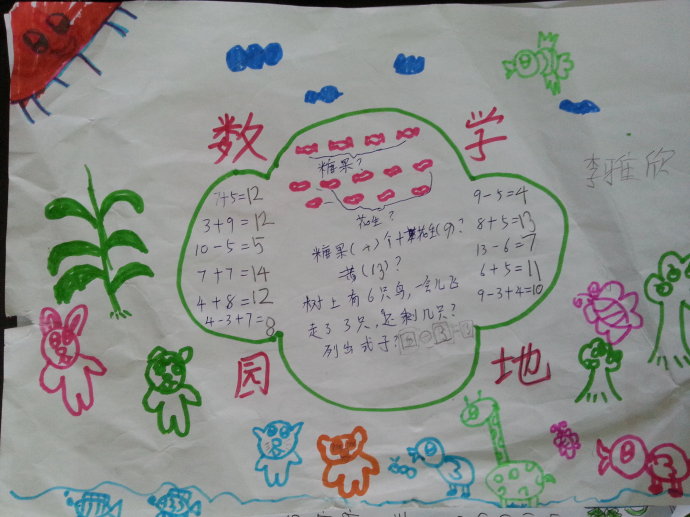 数学
李雅欣
7+5=12
3+9=12
10-5=5
7+7=14
4+8=12
4-3+7=8
糖果?
花生?
糖果(4)个+花生(9)?
=黄(13)?
树上有6只鸟,一会儿飞
走了3只,还剩几只?
列出式子?
9-5=4
8+5=13
13-6=7
6+5=11
9-3+4=10
园地